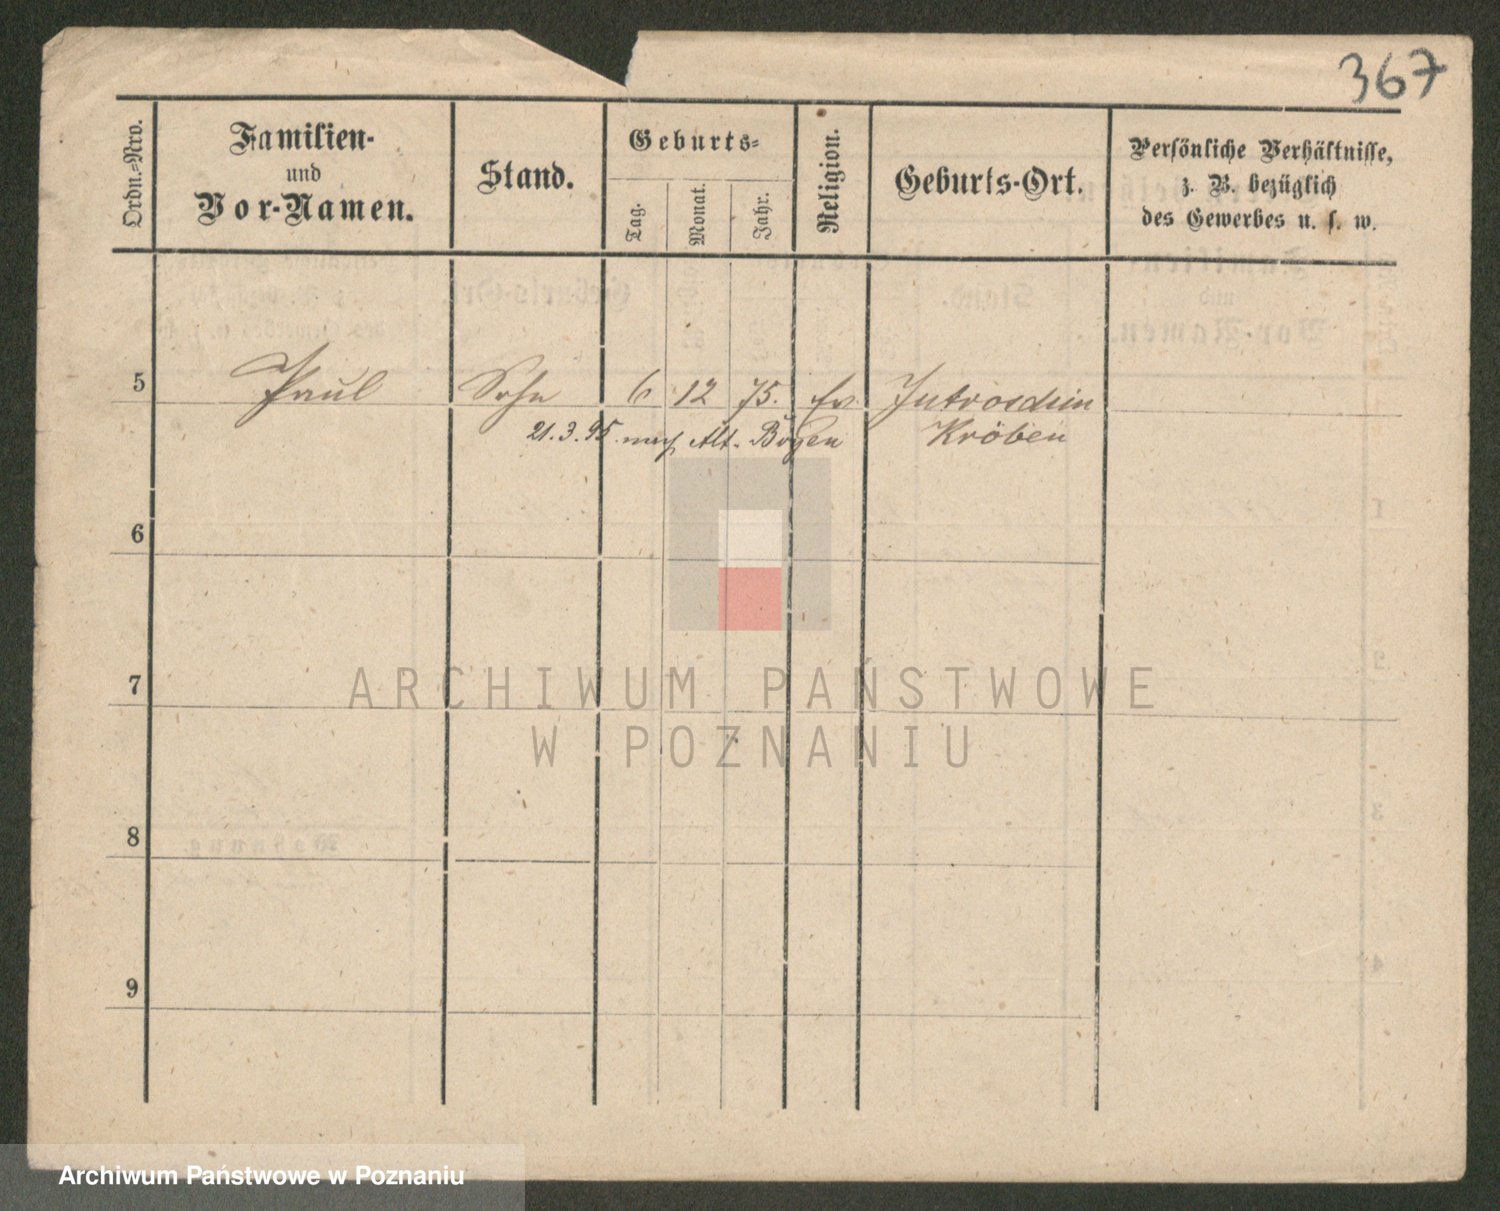 367
Ordn.-Nro.
Familien-
und
Vor-Namen.
Stand.
Geburts-
Tag.
Monat.
Jahr.
Religion.
Geburts-Ort.
Persönliche Verhältnisse,
z. B. bezüglich
des Gewerbes u. s. w.
5 Paul Sohn 6 12 75. Ev. Jutroschin
21.3.95. nach Alt-Boyen Kröben
6
7
8
9
ARCHIWUM PAŃSTWOWE
W POZNANIU
Archiwum Państwowe w Poznaniu